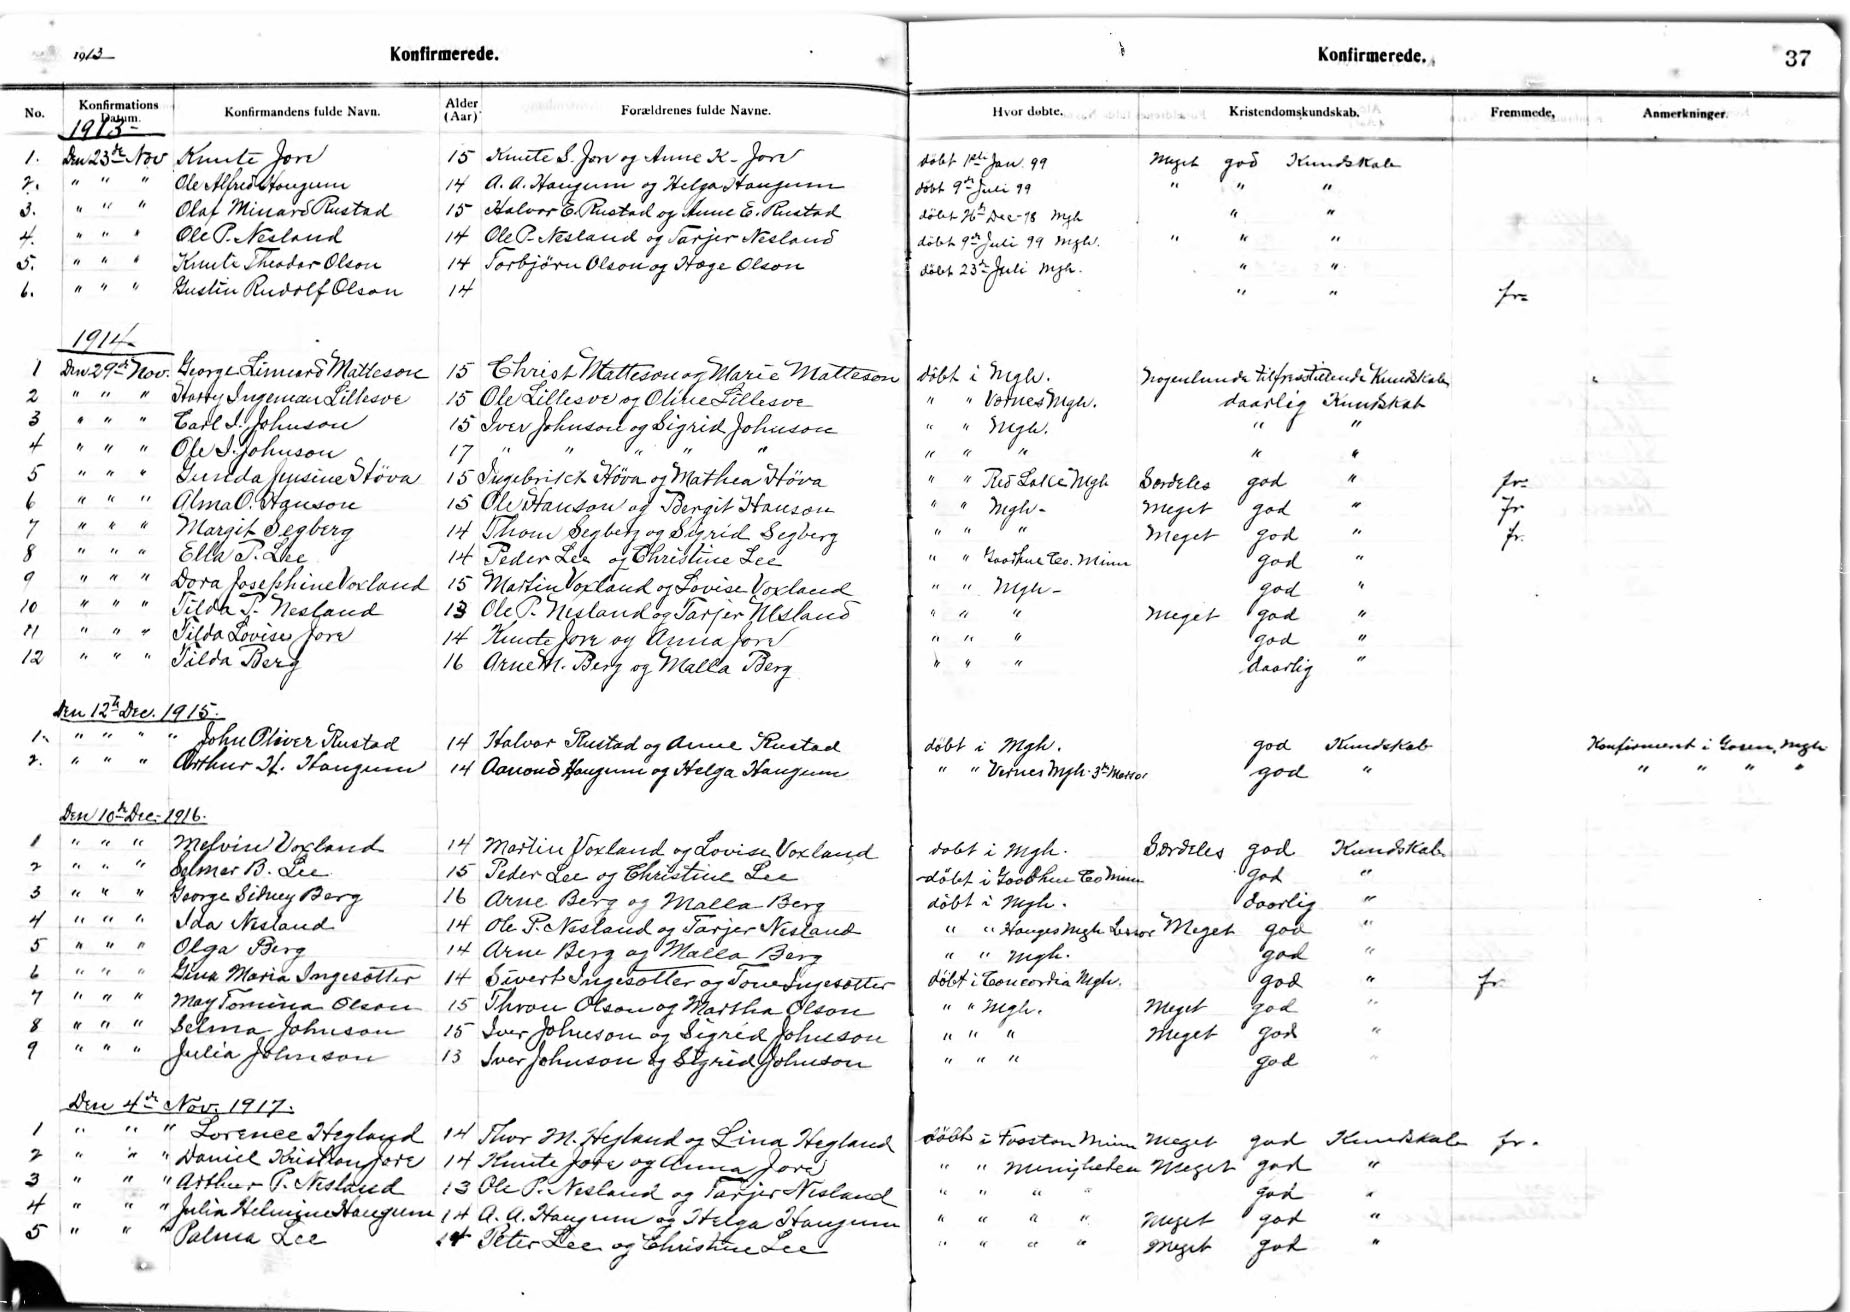 1913 Konfirmerede. Konfirmerede. 37
No. Konfirmations Datum. Konfirmandens fulde Navn. Alder (Aar) Forældrenes fulde Navne. Hvor døbte. Kristendomskundskab. Fremmede, Anmerkninger.
1913-
1. Den 23de Nov Knute Jore 15 Knute S. Jore og Anne K- Jore döbt 1ste Jan. 99 Meget god Kundskab
2. " " " Ole Alfred Haugum 14 A. A. Haugum og Helga Haugum döbt 9de Juli 99 " " "
3. " " " Olaf Minard Rustad 15 Halvor E. Rustad og Anne E. Rustad döbt 26de Dec-98 Mgh " "
4. " " " Ole P. Nesland 14 Ole P. Nesland og Tarjer Nesland döbt 9de Juli 99 Mgh. " " "
5. " " " Knute Theodor Olson 14 Torbjörn Olson og Hæge Olson döbt 23de Juli Mgh. " "
6. " " " Gustin Rudolf Olson 14 " " fr=
1914
1 Den 29de Nov. George Linnerd Matteson 15 Christ Matteson og Marie Matteson döbt i Mgh. Nogenlunde tilfredstillende Kundskab
2 " " " Harry Ingeman Lillesve 15 Ole Lillesve og Oline Lillesve " "Værnes Mgh. daarlig Kundskab
3 " " " Carl I. Johnson 15 Iver Johnson og Sigrid Johnson " " Mgh. " "
4 " " " Ole I. Johnson 17 " " " " " " " " " "
5 " " " Gunda Jensine Höva 15 Ingebrikt Höva og Mathea Höva " " Red Lake Mgh Særdeles god " fr=
6 " " " Alma O. Hanson 15 Ole Hanson og Bergit Hanson " " Mgh- Meget god " fr
7 " " " Margit Segberg 14 Thom Segberg og Sigrid Segberg " " " Meget god " fr.
8 " " " Ella P. Lee 14 Peder Lee og Christine Lee " " Goodhue Co. Minn god "
9 " " " Dora Josephine Voxland 15 Martin Voxland og Lovise Voxland " " Mgh- god "
10 " " " Tilda P. Nesland 13 Ole P. Nesland og Tarjer Nesland " " " Meget god "
11 " " " Tilda Lovise Jore 14 Knute Jore og Anna Jore " " " god "
12 " " " Tilda Berg 16 Arne M. Berg og Malla Berg " " " daarlig "
Den 12te Dec. 1915.
1. " " " " John Oliver Rustad 14 Halvor Rustad og Anne Rustad döbt i Mgh. god Kundskab Konfirmeret i Gosen, Mgh
2. " " " Arthur H. Haugum 14 Aanond Haugum og Helga Haugum " " Vernes Mgh. 3de god " " " " "
Den 10de Dec. 1916.
1 " " " Melvin Voxland 14 Martin Voxland og Lovise Voxland döbt i Mgh. Særdeles god Kundskab
2 " " " Selmer B. Lee 15 Peder Lee og Christine Lee döbt i Goodhue Co Minn god "
3 " " " George Sidney Berg 16 Arne Berg og Malla Berg döbt i Mgh. daarlig "
4 " " " Ida Nesland 14 Ole P. Nesland og Tarjer Nesland " " Hauges Mgh Meget god "
5 " " " Olga Berg 14 Arne Berg og Malla Berg " " Mgh. god "
6 " " " Gina Maria Ingesötter 14 Sivert Ingesötter og Tone Ingesötter döbt i Concordia Mgh. god " fr
7 " " " May Tomina Olson 15 Thron Olson og Martha Olson " " Mgh. Meget god "
8 " " " Selma Johnson 15 Iver Johnson og Sigrid Johnson " " " Meget god "
9 " " " Julia Johnson 13 Iver Johnson og Sigrid Johnson " " " god "
Den 4de Nov. 1917.
1 " " " Lorence Hegland 14 Thor M. Hegland og Lina Hegland döbt i Fosston Minn Meget god Kundskab fr.
2 " " " Daniel Kristian Jore 14 Knute Jore og Anna Jore " " Menigheden Meget god "
3 " " " Arthur P. Nesland 13 Ole P. Nesland og Tarjer Nesland " " " " god "
4 " " " Julia Helmine Haugum 14 A. A. Haugum og Helga Haugum " " " " Meget god "
5 " " " Palma Lee 14 Peter Lee og Christine Lee " " " " Meget god "